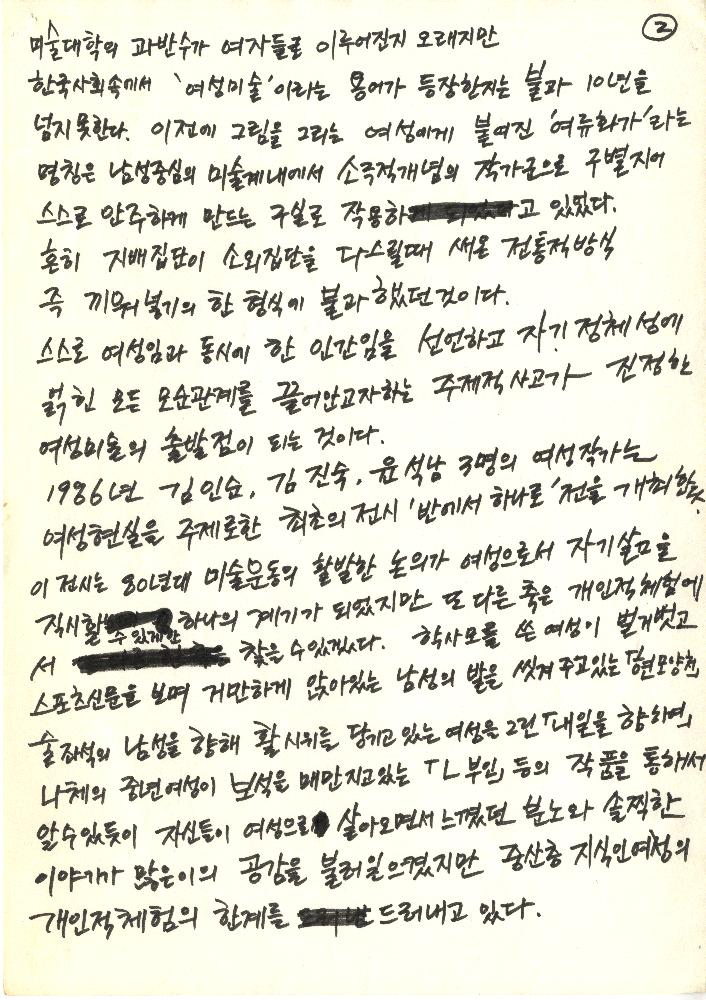 ②
미술대학의 과반수가 여자들로 이루어진지 오래지만
한국사회속에서 '여성미술'이라는 용어가 등장한지는 불과 10년을
넘지못한다. 이전에 그림을 그리는 여성에게 붙여진 '여류화가'라는
명칭은 남성중심의 미술계내에서 소극적개념의 작가군으로 구별지어
스스로 안주하게 만드는 구실로 작용하고 있었다.
흔히 지배집단이 소외집단을 다스릴때 써온 전통적방식
즉 끼워넣기의 한 형식에 불과했던것이다.
스스로 여성임과 동시에 한 인간임을 선언하고 자기정체성에
얽힌 모든 모순관계를 끌어안고자하는 주제적사고가 진정한
여성미술의 출발점이 되는 것이다.
1986년 김인순, 김진숙, 윤석남 3명의 여성작가는
여성현실을 주제로한 최초의 전시 '반에서 하나로'전을 개최한다.
이 전시는 80년대 미술운동의 활발한 논의가 여성으로서 자기삶을
직시할 수 있게한 하나의 계기가 되었지만 또 다른 축은 개인적체험에
서 찾을수있겠다. 학사모를 쓴 여성이 벌거벗고
스포츠신문을 보며 거만하게 앉아있는 남성의 발을 씻겨주고있는 「현모양처」
술좌석의 남성을 향해 활시위를 당기고 있는 여성을 그린 「내일을 향하여」
나체의 중년여성이 보석을 매만지고있는 「L부인」 등의 작품을 통해서
알수있듯이 자신들이 여성으로 살아오면서 느꼈던 분노와 솔찍한
이야기가 많은이의 공감을 불러일으켰지만 중산층 지식인여성의
개인적체험의 한계를 드러내고 있다.